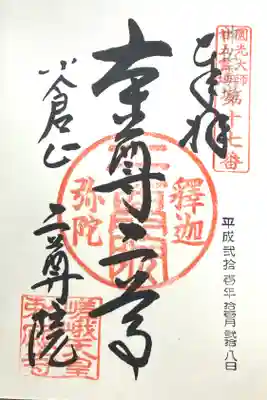 圓光大師
廿五霊場
第十七番
奉拝
本尊二尊
小倉山
二尊院
釋迦
弥陀
嵯峨天皇
平成弐拾壹年拾壹月弐拾八日